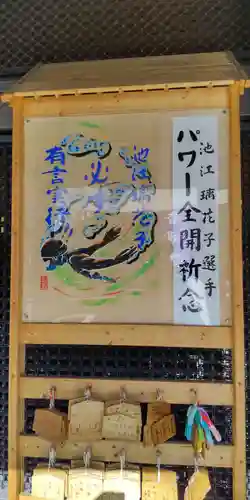 池江璃花子選手
パワー全開祈念
池江璃花子
必
有言実行